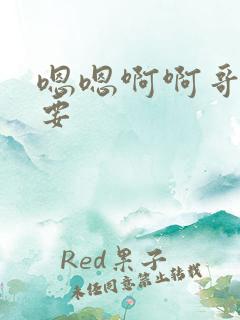 嗯嗯啊啊哥
要
Red果子
未经同意禁止转载